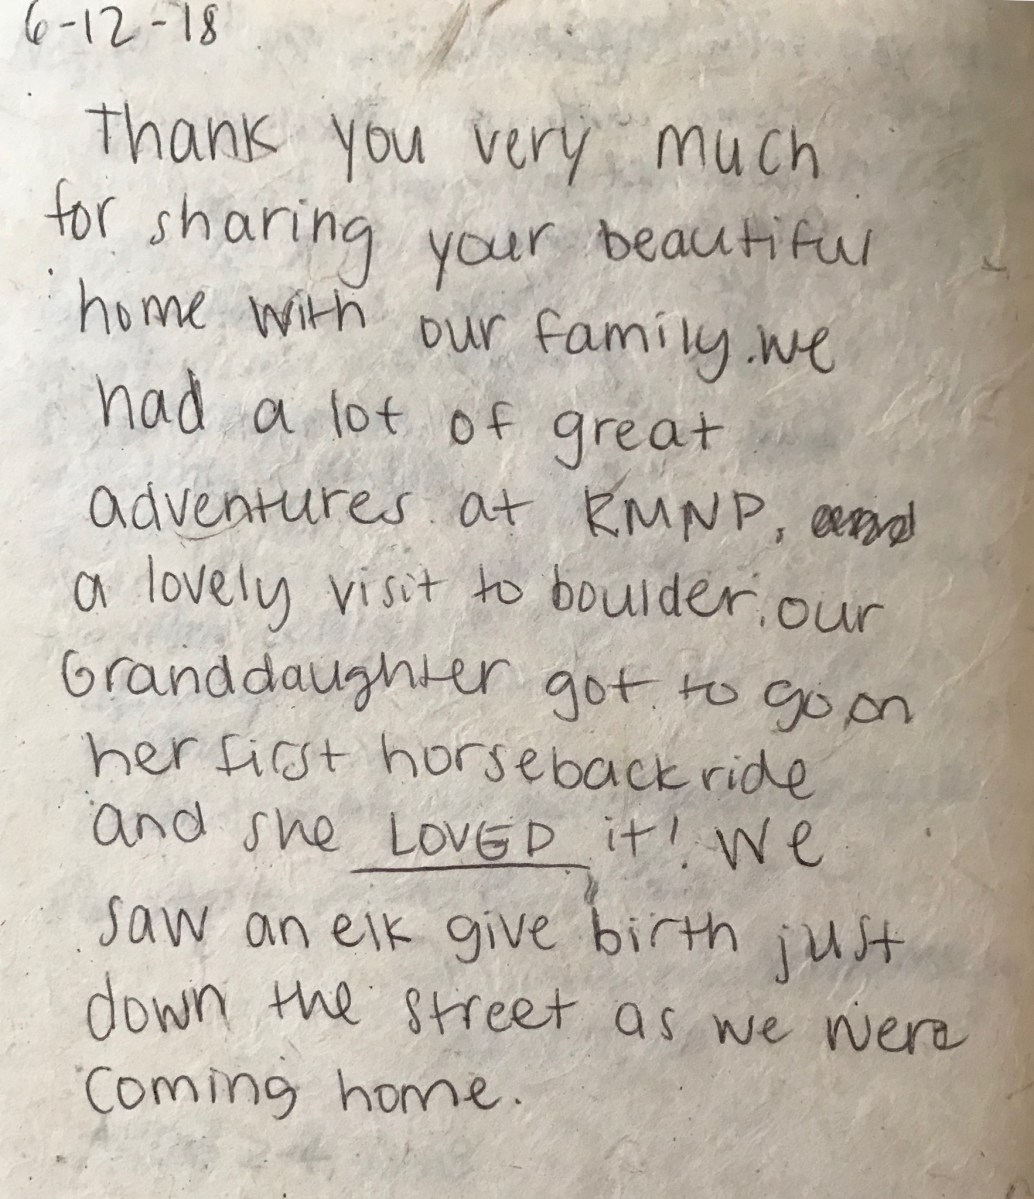 6-12-18
Thank you very much
for sharing your beautiful
home with our family. we
had a lot of great
adventures at RMNP, and
a lovely visit to boulder. our
Granddaughter got to go on
her first horseback ride
and she LOVED it! We
saw an elk give birth just
down the street as we were
coming home.